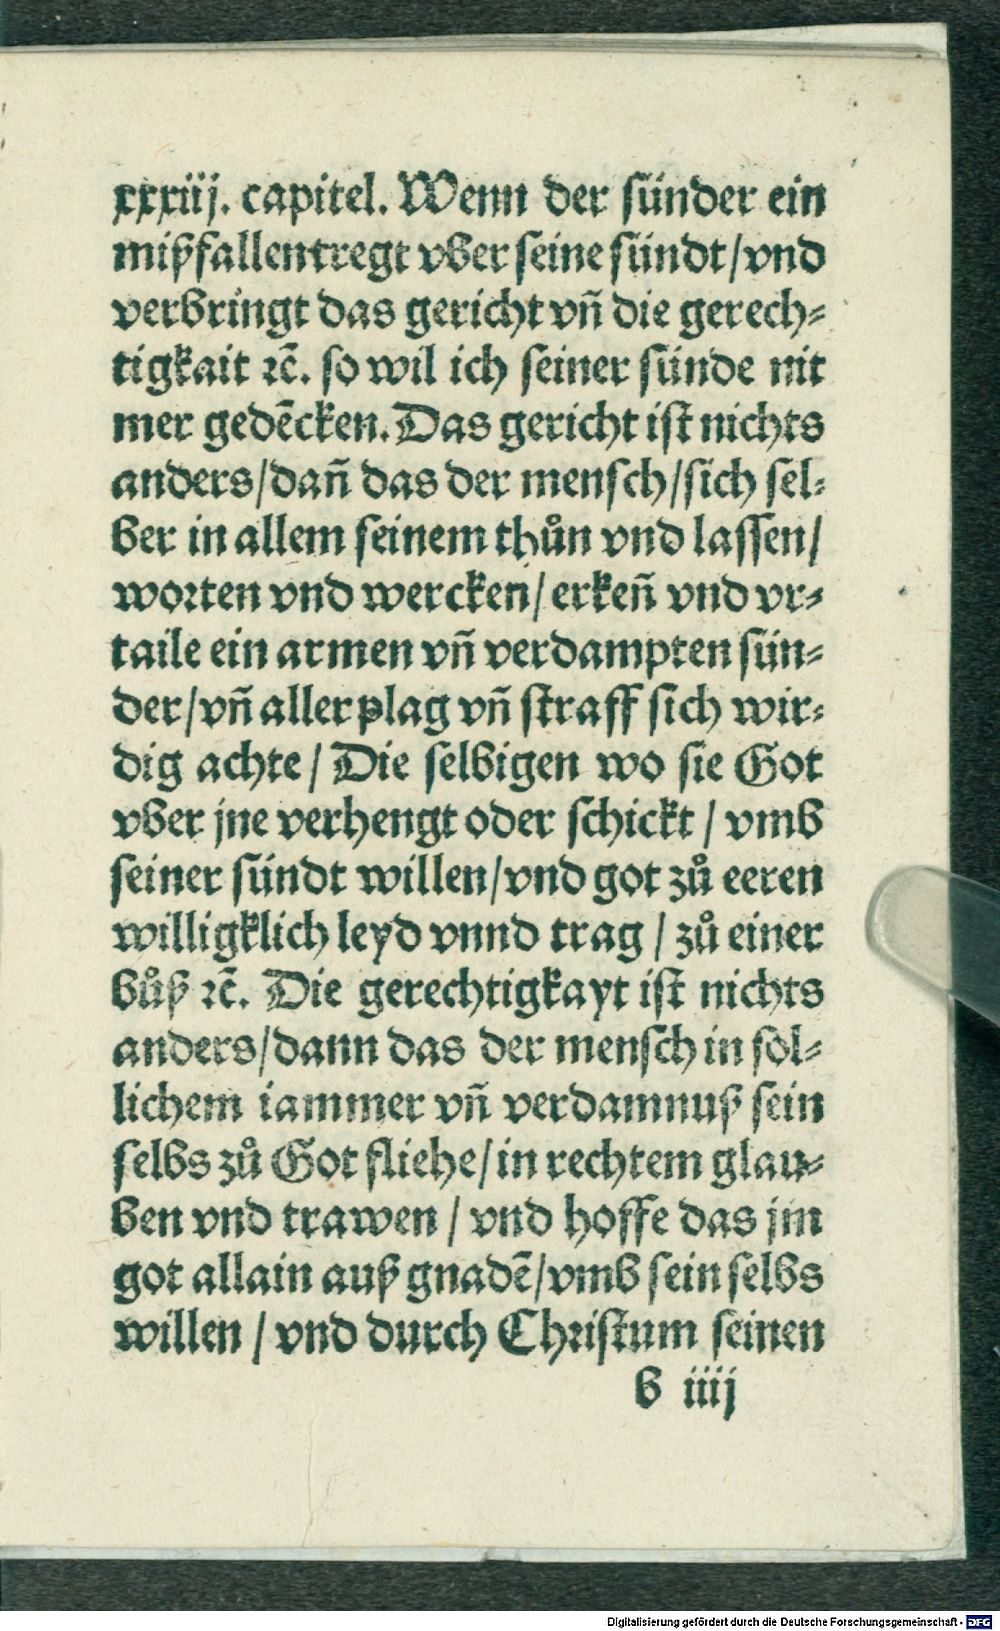 xxxiij. capitel. Wenn der sünder ein
mißfallen tregt vber seine sündt / vnd
verbringt das gericht vn̄ die gerech⸗
tigkait ⁊c̄. so wil ich seiner sünde nit
mer gedēcken. Das gericht ist nichts
anders / dan̄ das der mensch / sich sel⸗
ber in allem seinem thůn vnd lassen /
worten vnd wercken / erken̄ vnd vr⸗
taile ein armen vn̄ verdampten sün⸗
der / vn̄ aller plag vn̄ straff sich wir⸗
dig achte / Die selbigen wo sie Got
vber jne verhengt oder schickt / vmb
seiner sündt willen / vnd got zů eeren
willigklich leyd vnnd trag / zů einer
bůß ⁊c̄. Die gerechtigkayt ist nichts
anders / dann das der mensch in sol⸗
lichem iammer vn̄ verdamnuß sein
selbs zů Got fliehe / in rechtem glau⸗
ben vnd trawen / vnd hoffe das jm
got allain auß gnadē / vmb sein selbs
willen / vnd durch Christum seinen
b iiij
Digitalisierung gefördert durch die Deutsche Forschungsgemeinschaft - DFG